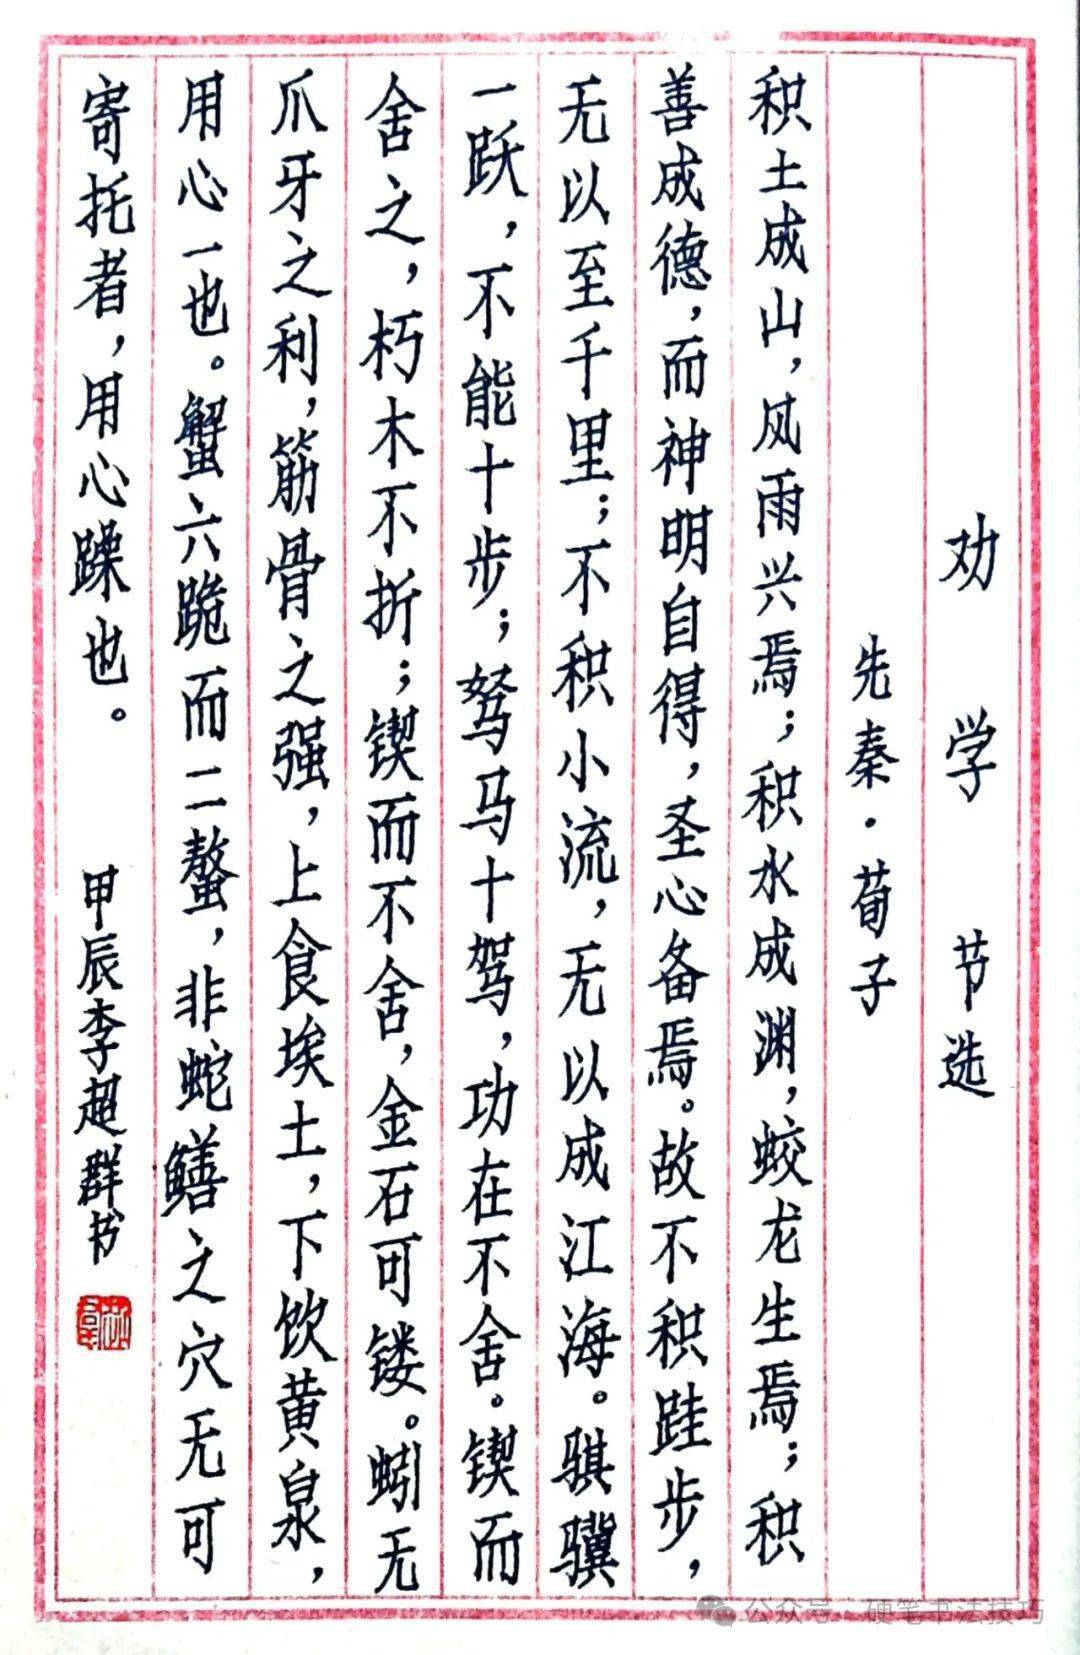 劝学 节选
先秦·荀子
积土成山，风雨兴焉；积水成渊，蛟龙生焉；积
善成德，而神明自得，圣心备焉。故不积跬步，
无以至千里；不积小流，无以成江海。骐骥
一跃，不能十步；驽马十驾，功在不舍。锲而
舍之，朽木不折；锲而不舍，金石可镂。蚓无
爪牙之利，筋骨之强，上食埃土，下饮黄泉，
用心一也。蟹六跪而二螯，非蛇鳝之穴无可
寄托者，用心躁也。
甲辰李超群书
公众号·硬笔书法技巧